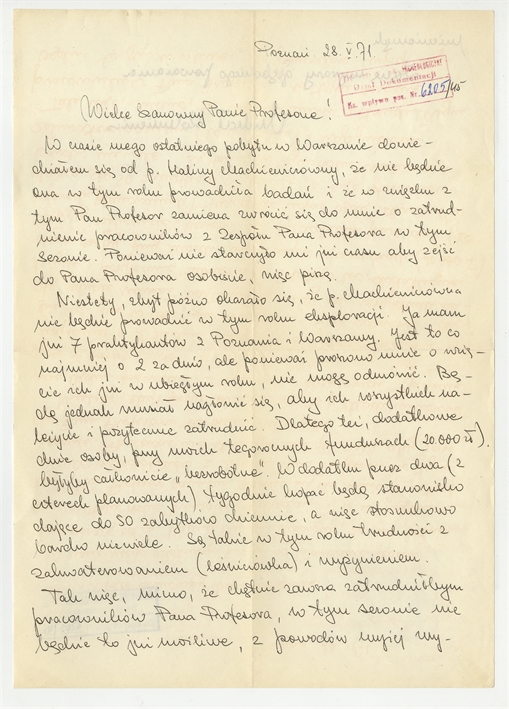 Poznań 28. V. 71
Dział Dokumentacji
Ks. wpływu poz. Nr. 6205/45
Wielce Szanowny Panie Profesorze!
W czasie mego ostatniego pobytu w Warszawie dowie-
działem się od p. Haliny Mackiewiczówny, że nie będzie
ona w tym roku prowadziła badań i że w związku z
tym Pan Profesor zamierza zwrócić się do mnie o zatrud-
nienie pracowników z Zespołu Pana Profesora w tym
sezonie. Ponieważ nie starczyło mi już czasu aby zejść
do Pana Profesora osobiście, więc piszę.
Niestety, zbyt późno okazało się, że p. Mackiewiczówna
nie będzie prowadzić w tym roku eksploracji. Ja mam
już 7 praktykantów z Poznania i Warszawy. Jest to co
najmniej o 2 za dużo, ale ponieważ proszono mnie o wzię-
cie ich już w ubiegłym roku, nie mogę odmówić. Bę-
dę jednak musiał nagłowić się, aby ich wszystkich na-
leżycie i pożytecznie zatrudnić. Dlatego też, dodatkowe
dwie osoby, przy moich tegorocznych funduszach (20.000 zł),
byłyby całkowicie „bezrobotne". W dodatku przez dwa (z
czterech planowanych) tygodnie kopać będę stanowisko
dające do 50 zabytków dziennie, a więc stosunkowo
bardzo niewiele. Są także w tym roku trudności z
zakwaterowaniem (leśniczówka) i wyżywieniem.
Tak więc, mimo, że chętnie zawsze zatrudniłbym
pracowników Pana Profesora, w tym sezonie nie
będzie to już możliwe, z powodów wyżej wy-